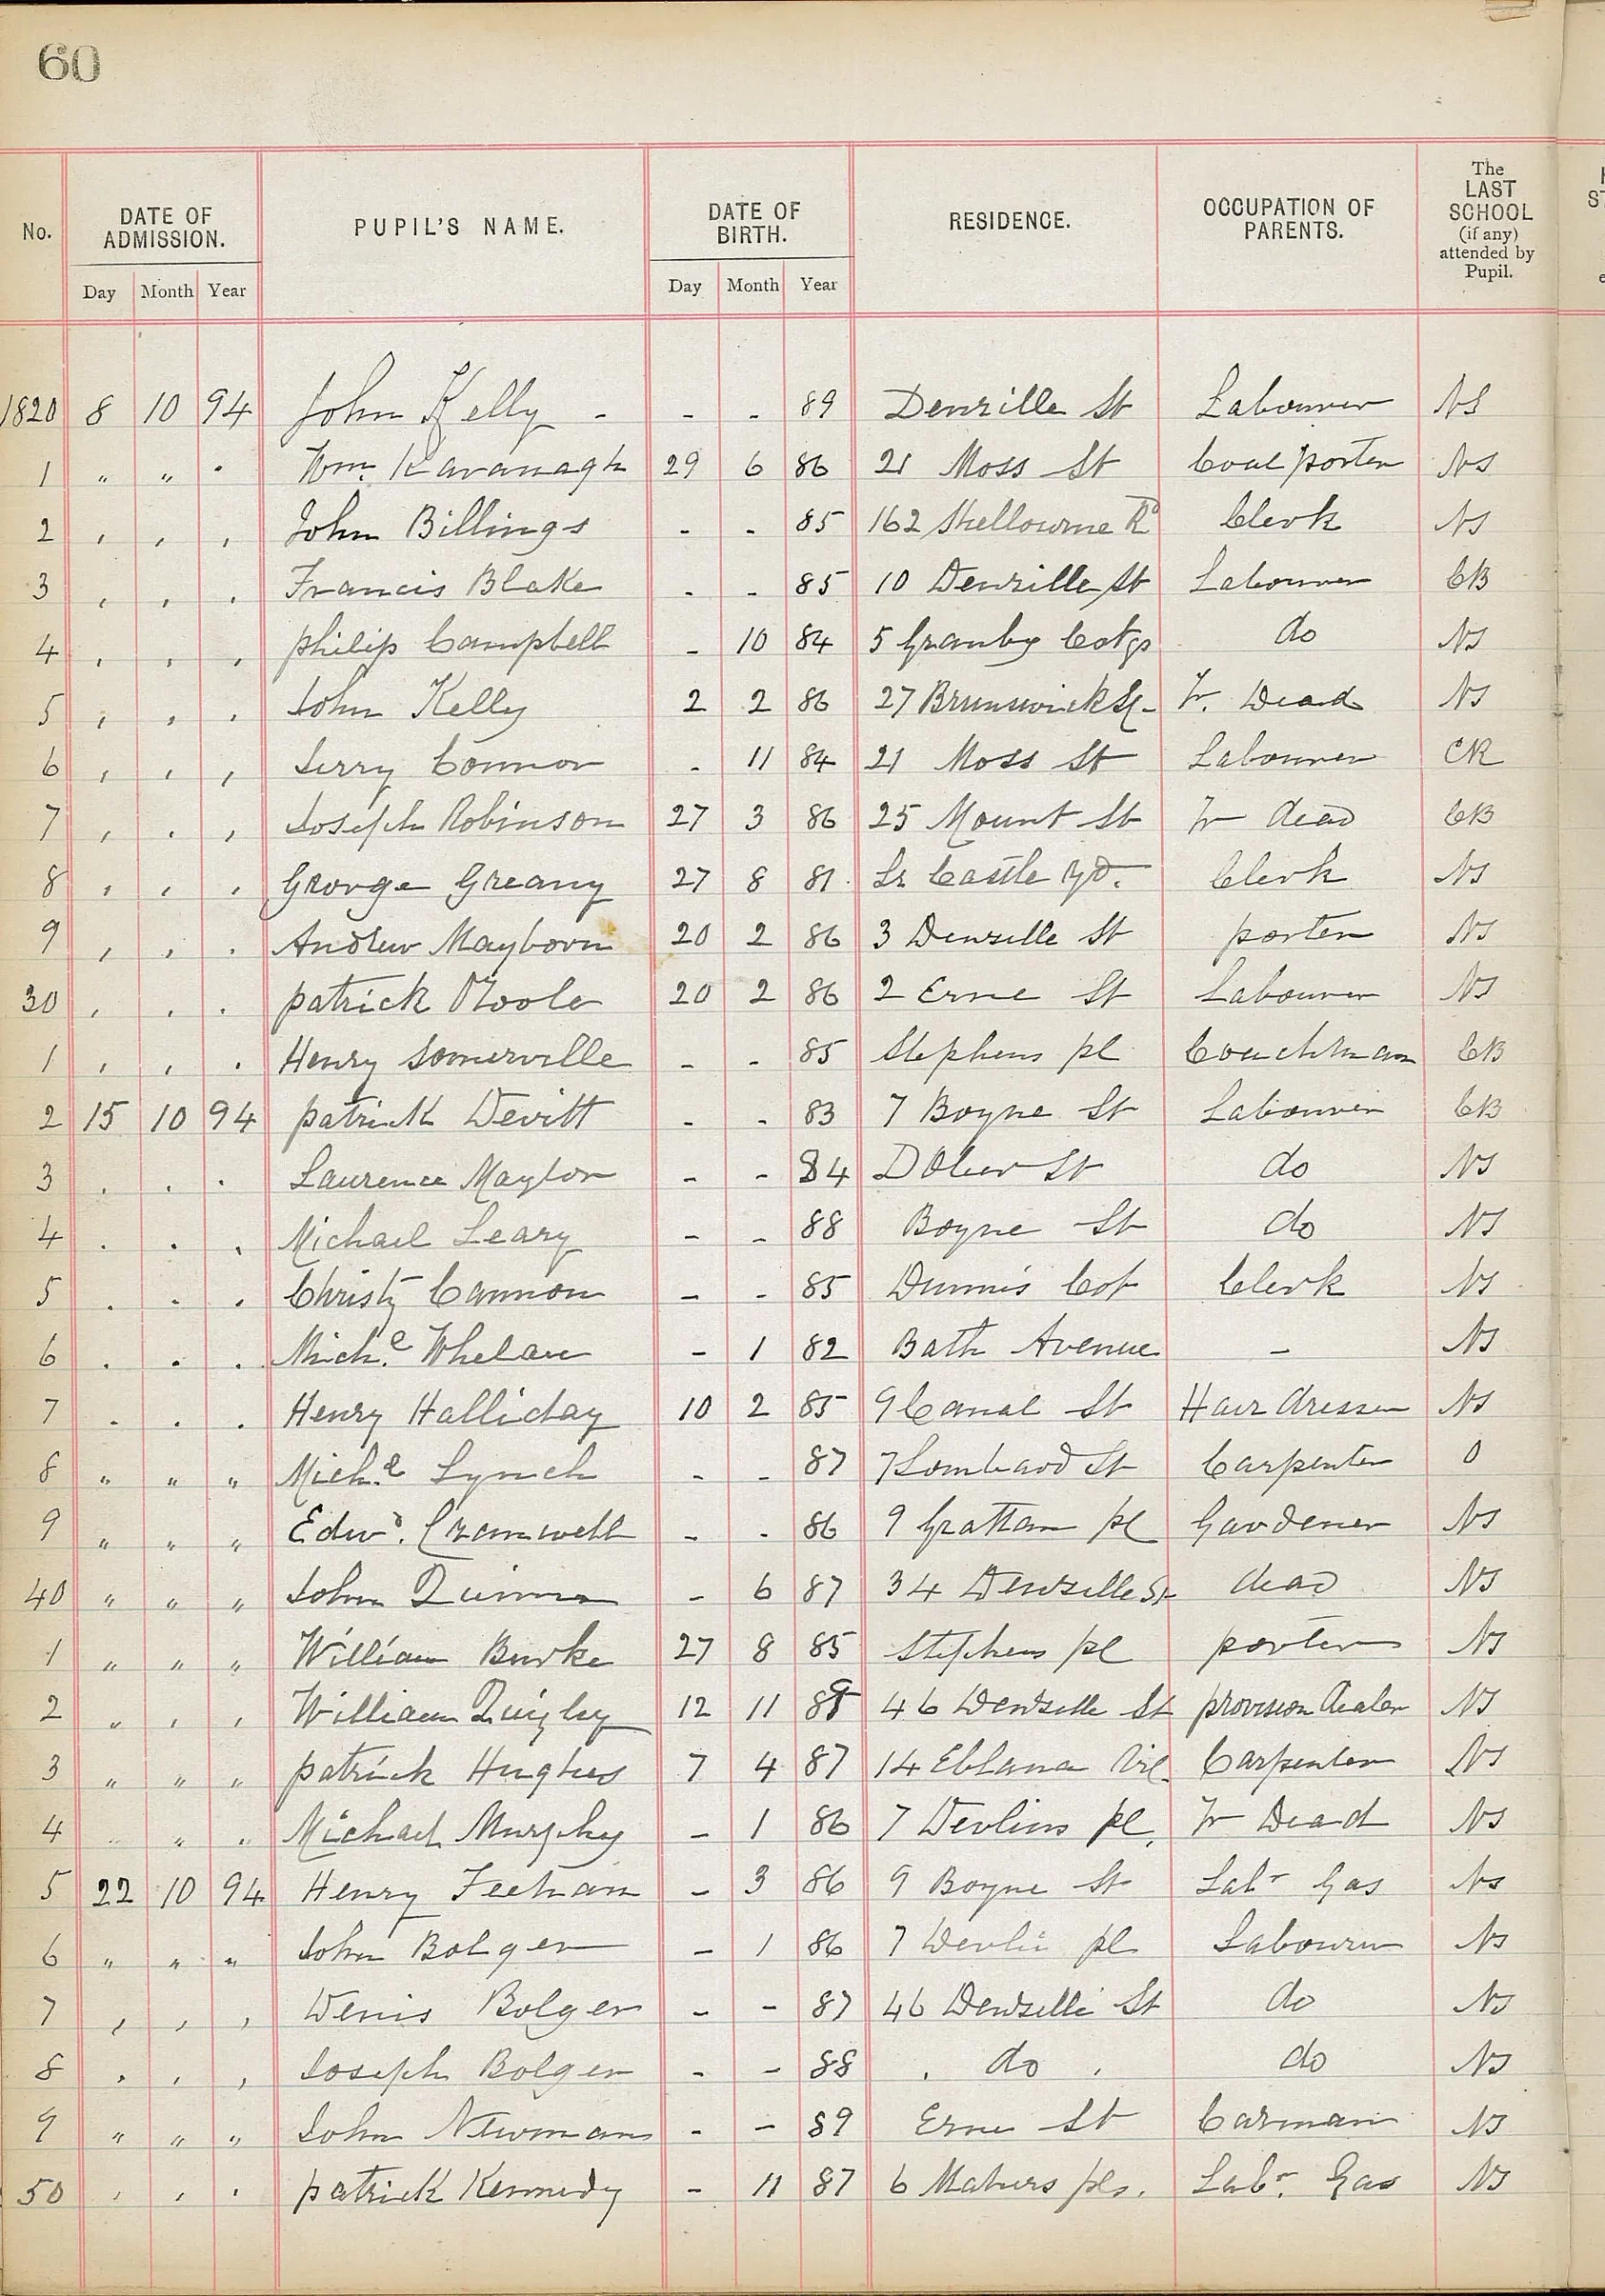 60
No. DATE OF ADMISSION. PUPIL'S NAME. DATE OF BIRTH. RESIDENCE. OCCUPATION OF PARENTS. The LAST SCHOOL (if any) attended by Pupil.
Day Month Year Day Month Year
1820 8 10 94 John Kelly - - - 89 Denzille St Labourer NS
1 " " " Wm. Kavanagh 29 6 86 21 Moss St Coal porter NS
2 , , , John Billings - - 85 162 Shelbourne Rd Clerk NS
3 , , , Francis Blake - - 85 10 Denzille St Labourer CB
4 , , , philip Campbell - 10 84 5 Granby Cotgs do NS
5 , , , John Kelly 2 2 86 27 Brunswick St - Fr. Dead NS
6 , , , Jerry Connor - 11 84 21 Moss St Labourer CR
7 , , , Joseph Robinson 27 3 86 25 Mount St Fr dead CB
8 , , , George Greany 27 8 81 Lr Castle Yd. Clerk NS
9 , , , Andrew Mayborn 20 2 86 3 Denzille St porter NS
30 , , , patrick OToole 20 2 86 2 Erne St Labourer NS
1 , , , Henry Somerville - - 85 Stephens pl Coachman CB
2 15 10 94 patrick Devitt - - 83 7 Boyne St Labourer CB
3 . . . Laurence Maylor - - 84 DOlier St do NS
4 . . . Michael Leary - - 88 Boyne St do NS
5 . . . Christy Cannon - - 85 Dunnis Cot Clerk NS
6 . . . Mich.l Whelan - 1 82 Bath Avenue - NS
7 . . . Henry Halliday 10 2 85 9 Canal St Hair dresser NS
8 " " " Mich.l Lynch - - 87 7 Lombard St Carpenter O
9 " " " Edwd. Cramwell - - 86 9 Grattan pl Gardener NS
40 " " " John Quinn - 6 87 34 Denzille St dead NS
1 " " " William Burke 27 8 85 Stephens pl porter NS
2 " , , William Quigley 12 11 89 46 Denzille St provision dealer NS
3 " " " patrick Hughes 7 4 87 14 Eblana Vil. Carpenter NS
4 " " " Michael Murphy - 1 86 7 Devlins pl. Fr Dead NS
5 22 10 94 Henry Feetham - 3 86 9 Boyne St Labr Gas NS
6 " " " John Bolger - 1 86 7 Devlin pl Labourer NS
7 , , , Denis Bolger - - 87 46 Denzille St do NS
8 , , , Joseph Bolger - - 88 . do . do NS
9 " " " John Newman - - 89 Erne St Carman NS
50 , , , patrick Kennedy - 11 87 6 Mahers pls. Labr. Gas NS